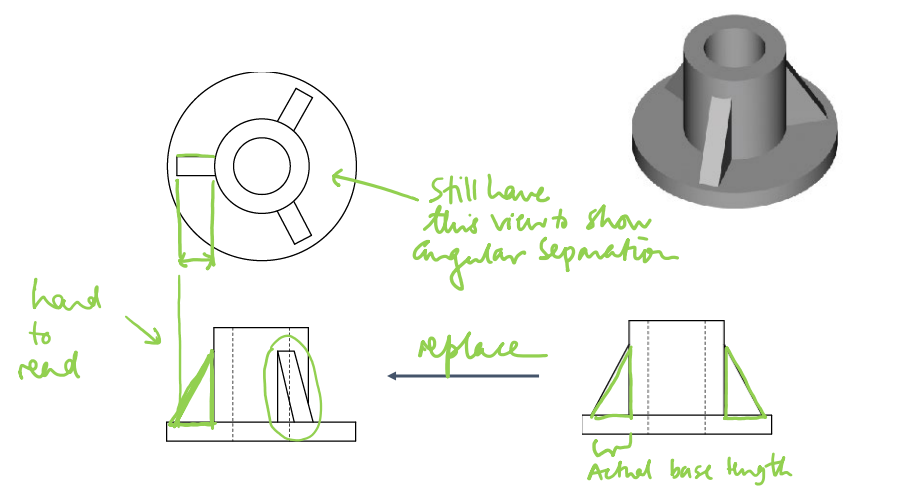 Still have
this view to show
angular separation
hard
to
read
replace
Actual base length